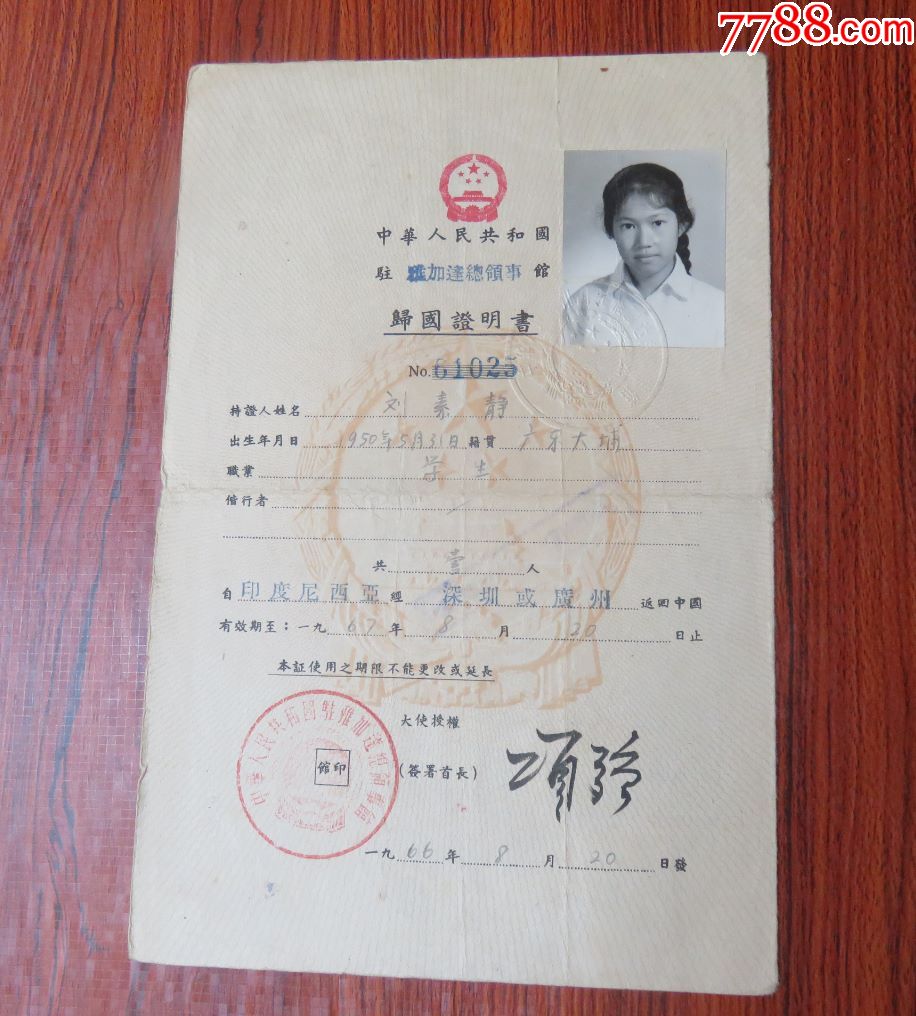 7788.com
中華人民共和國
駐 雅加達總領事 館
歸國證明書
No. 61025
持證人姓名 刘素静
出生年月日 1950年5月31日 籍貫 广东大埔
職業 学生
偕行者
共 壹 人
自 印度尼西亞 經 深圳或廣州 返回中國
有效期至：一九67年8月20日止
本証使用之期限不能更改或延長
大使授權
(簽署首長)
館印
中華人民共和國駐雅加達總領事館
一九66年8月20日發